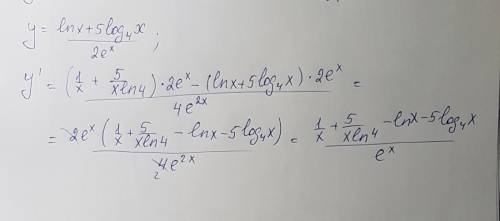 y = (ln x + 5 log₄ x) / (2eˣ) ;
y' = ((1/x + 5/(x ln 4)) · 2eˣ − (ln x + 5 log₄ x) · 2eˣ) / (4e²ˣ) =
= 2eˣ (1/x + 5/(x ln 4) − ln x − 5 log₄ x) / (4e²ˣ) 2 = (1/x + 5/(x ln 4) − ln x − 5 log₄ x) / eˣ